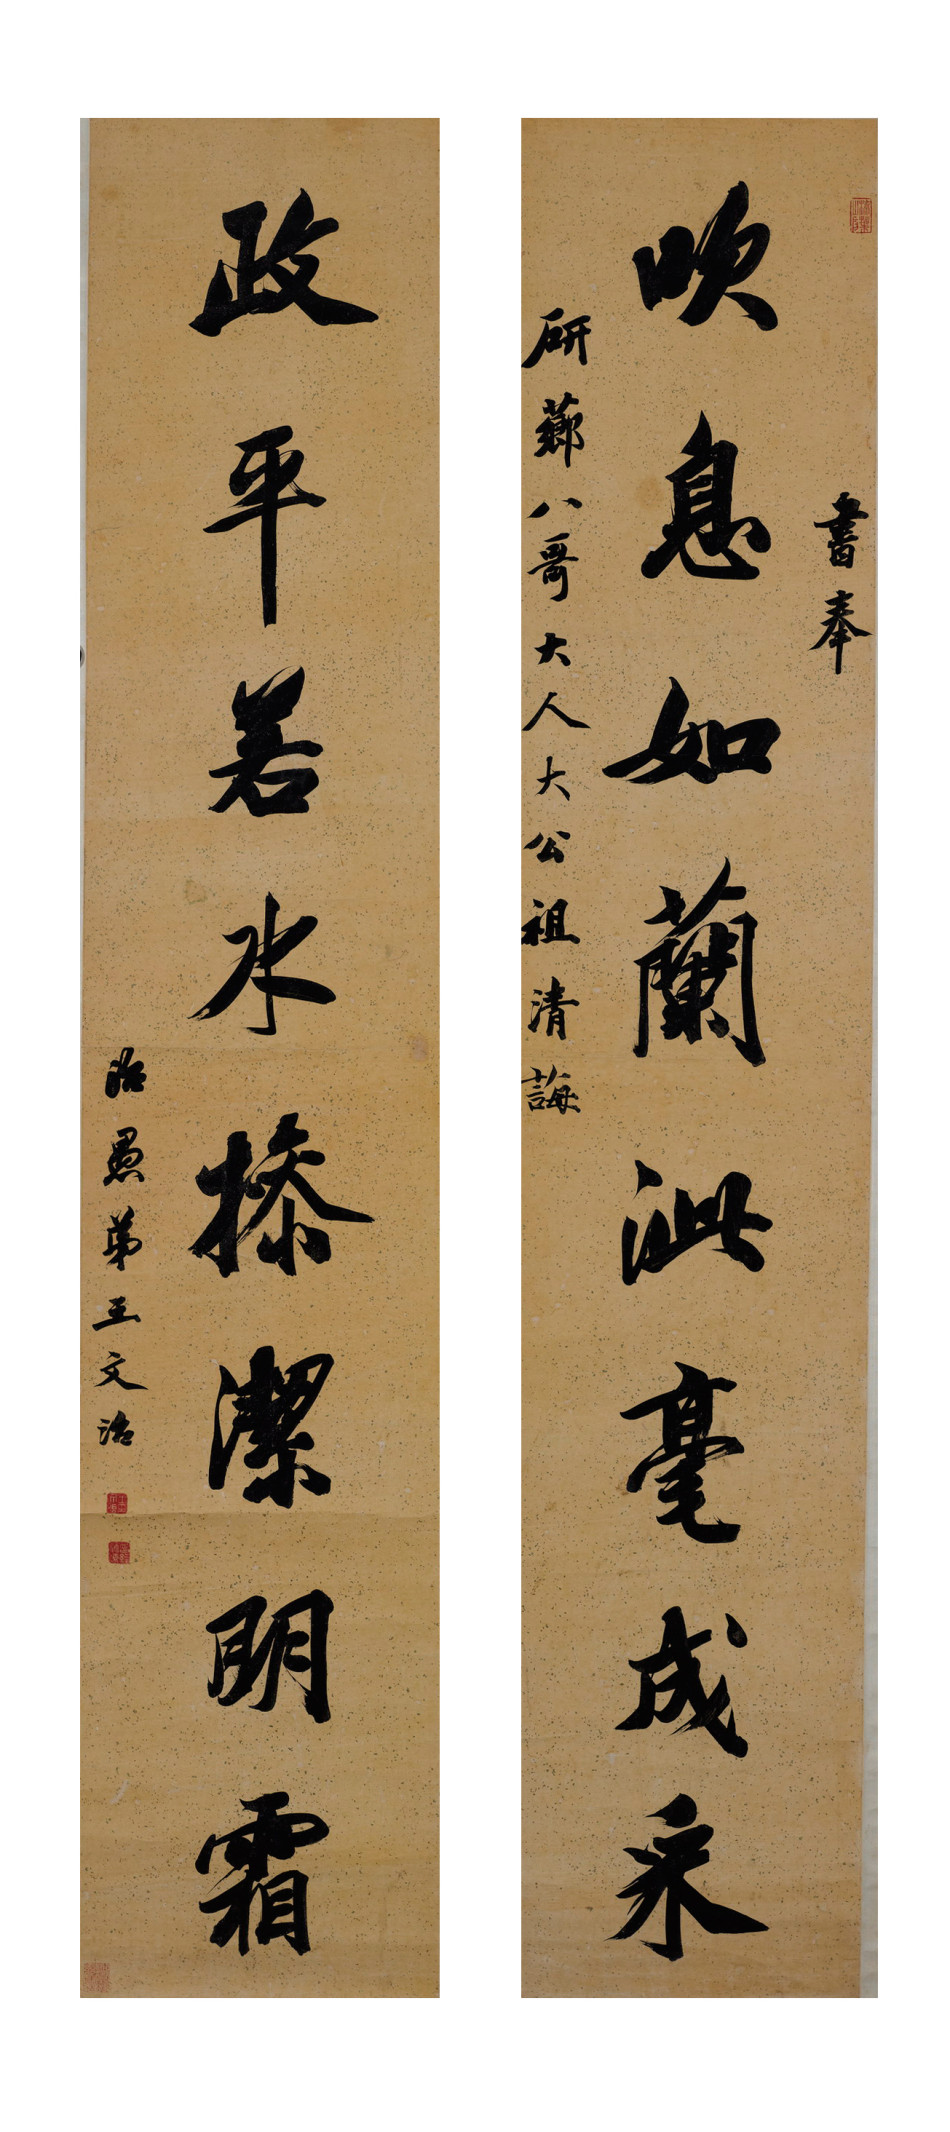 書奉
吹息如蘭泚毫成采
研薌八哥大人大公祖清誨
政平若水操潔朙霜
治愚弟王文治